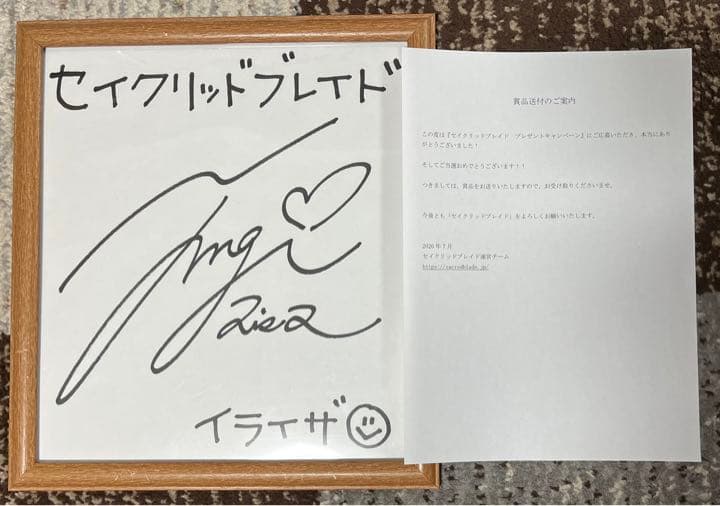 セイクリッドブレイド
イライザ
賞品送付のご案内
この度は『セイクリッドブレイド プレゼントキャンペーン』にご応募いただき、本当にあり
がとうございました！
そしてご当選おめでとうございます！！
つきましては、賞品をお送りいたしますので、お受け取りくださいませ。
今後とも『セイクリッドブレイド』をよろしくお願いいたします。
2020年7月
セイクリッドブレイド運営チーム
https://sacredblade.jp/